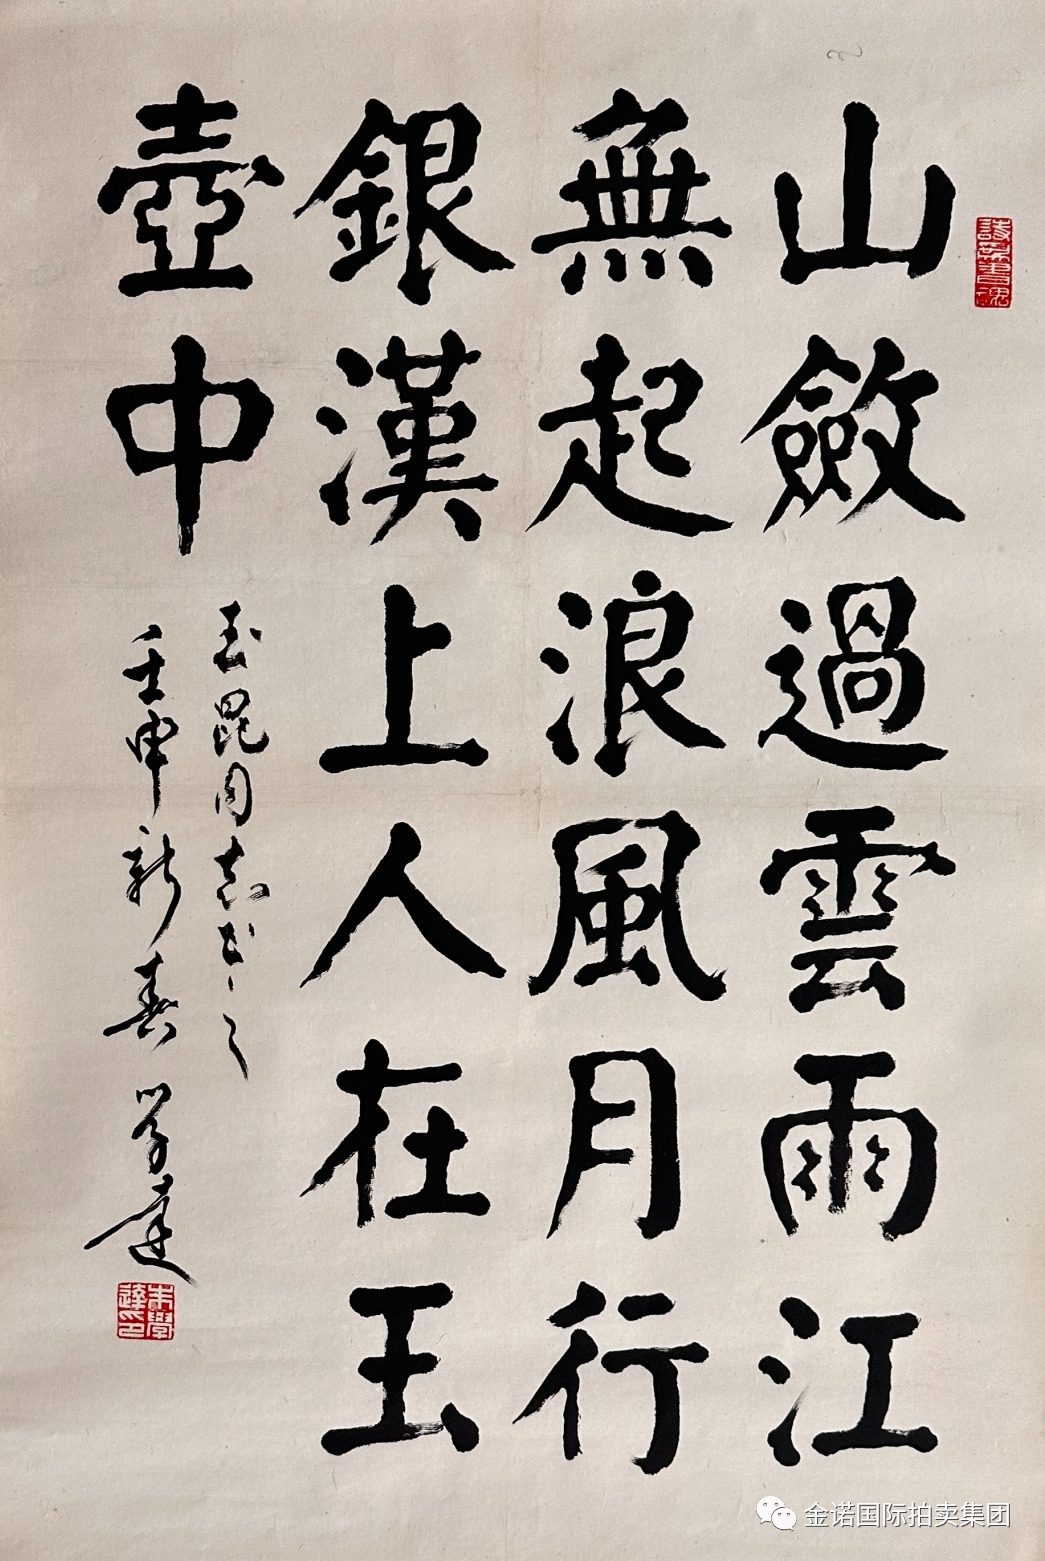 山斂過雲雨江
無起浪風月行
銀漢上人在玉
壺中
玉昆同志书之
壬申新春 学達
朱學達印
金诺国际拍卖集团